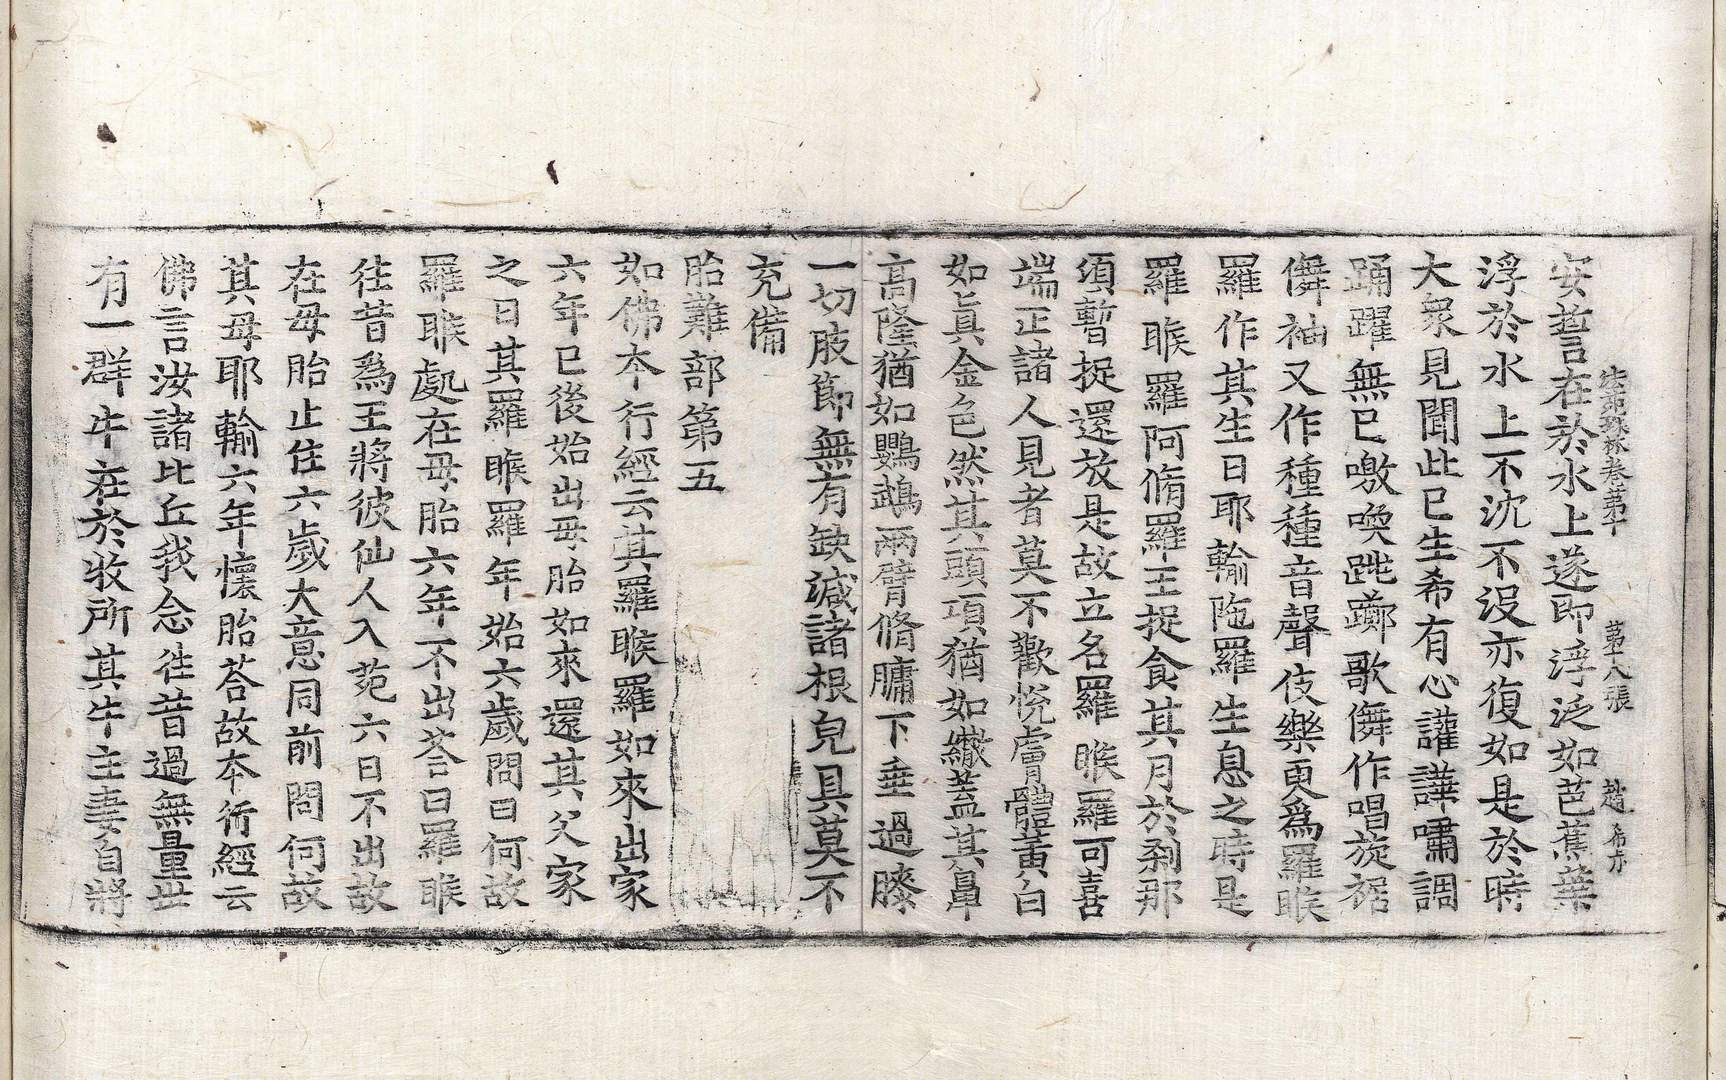 法苑珠林卷第十　第十八張　趙布方
安誓言在於水上遂即浮泛如芭蕉葉
浮於水上不沈不沒亦復如是於時
大衆見聞此已生希有心讙譁嘯調
踊躍無已噭喚跳躑歌儛作唱旋裾
儛袖又作種種音聲伎樂更爲羅睺
羅作其生日耶輸陁羅生息之時是
羅睺羅阿脩羅王捉食其月於刹那
須暫捉還放是故立名羅睺羅可喜
端正諸人見者莫不歡悅膚體黃白
如眞金色然其頭項猶如繖蓋其鼻
高隆猶如鸚鵡兩臂脩膊下垂過膝
一切肢節無有缺減諸根皃具莫不
充備
胎難部第五
如佛本行經云其羅睺羅如來出家
六年已後始出母胎如來還其父家
之日其羅睺羅年始六歲問曰何故
羅睺處在母胎六年不出荅曰羅睺
往昔爲王將彼仙人入苑六日不出故
在母胎止住六歲大意同前問何故
其母耶輸六年懷胎荅故本行經云
佛言汝諸比丘我念往昔過無量世
有一群牛在於牧所其牛主妻自將